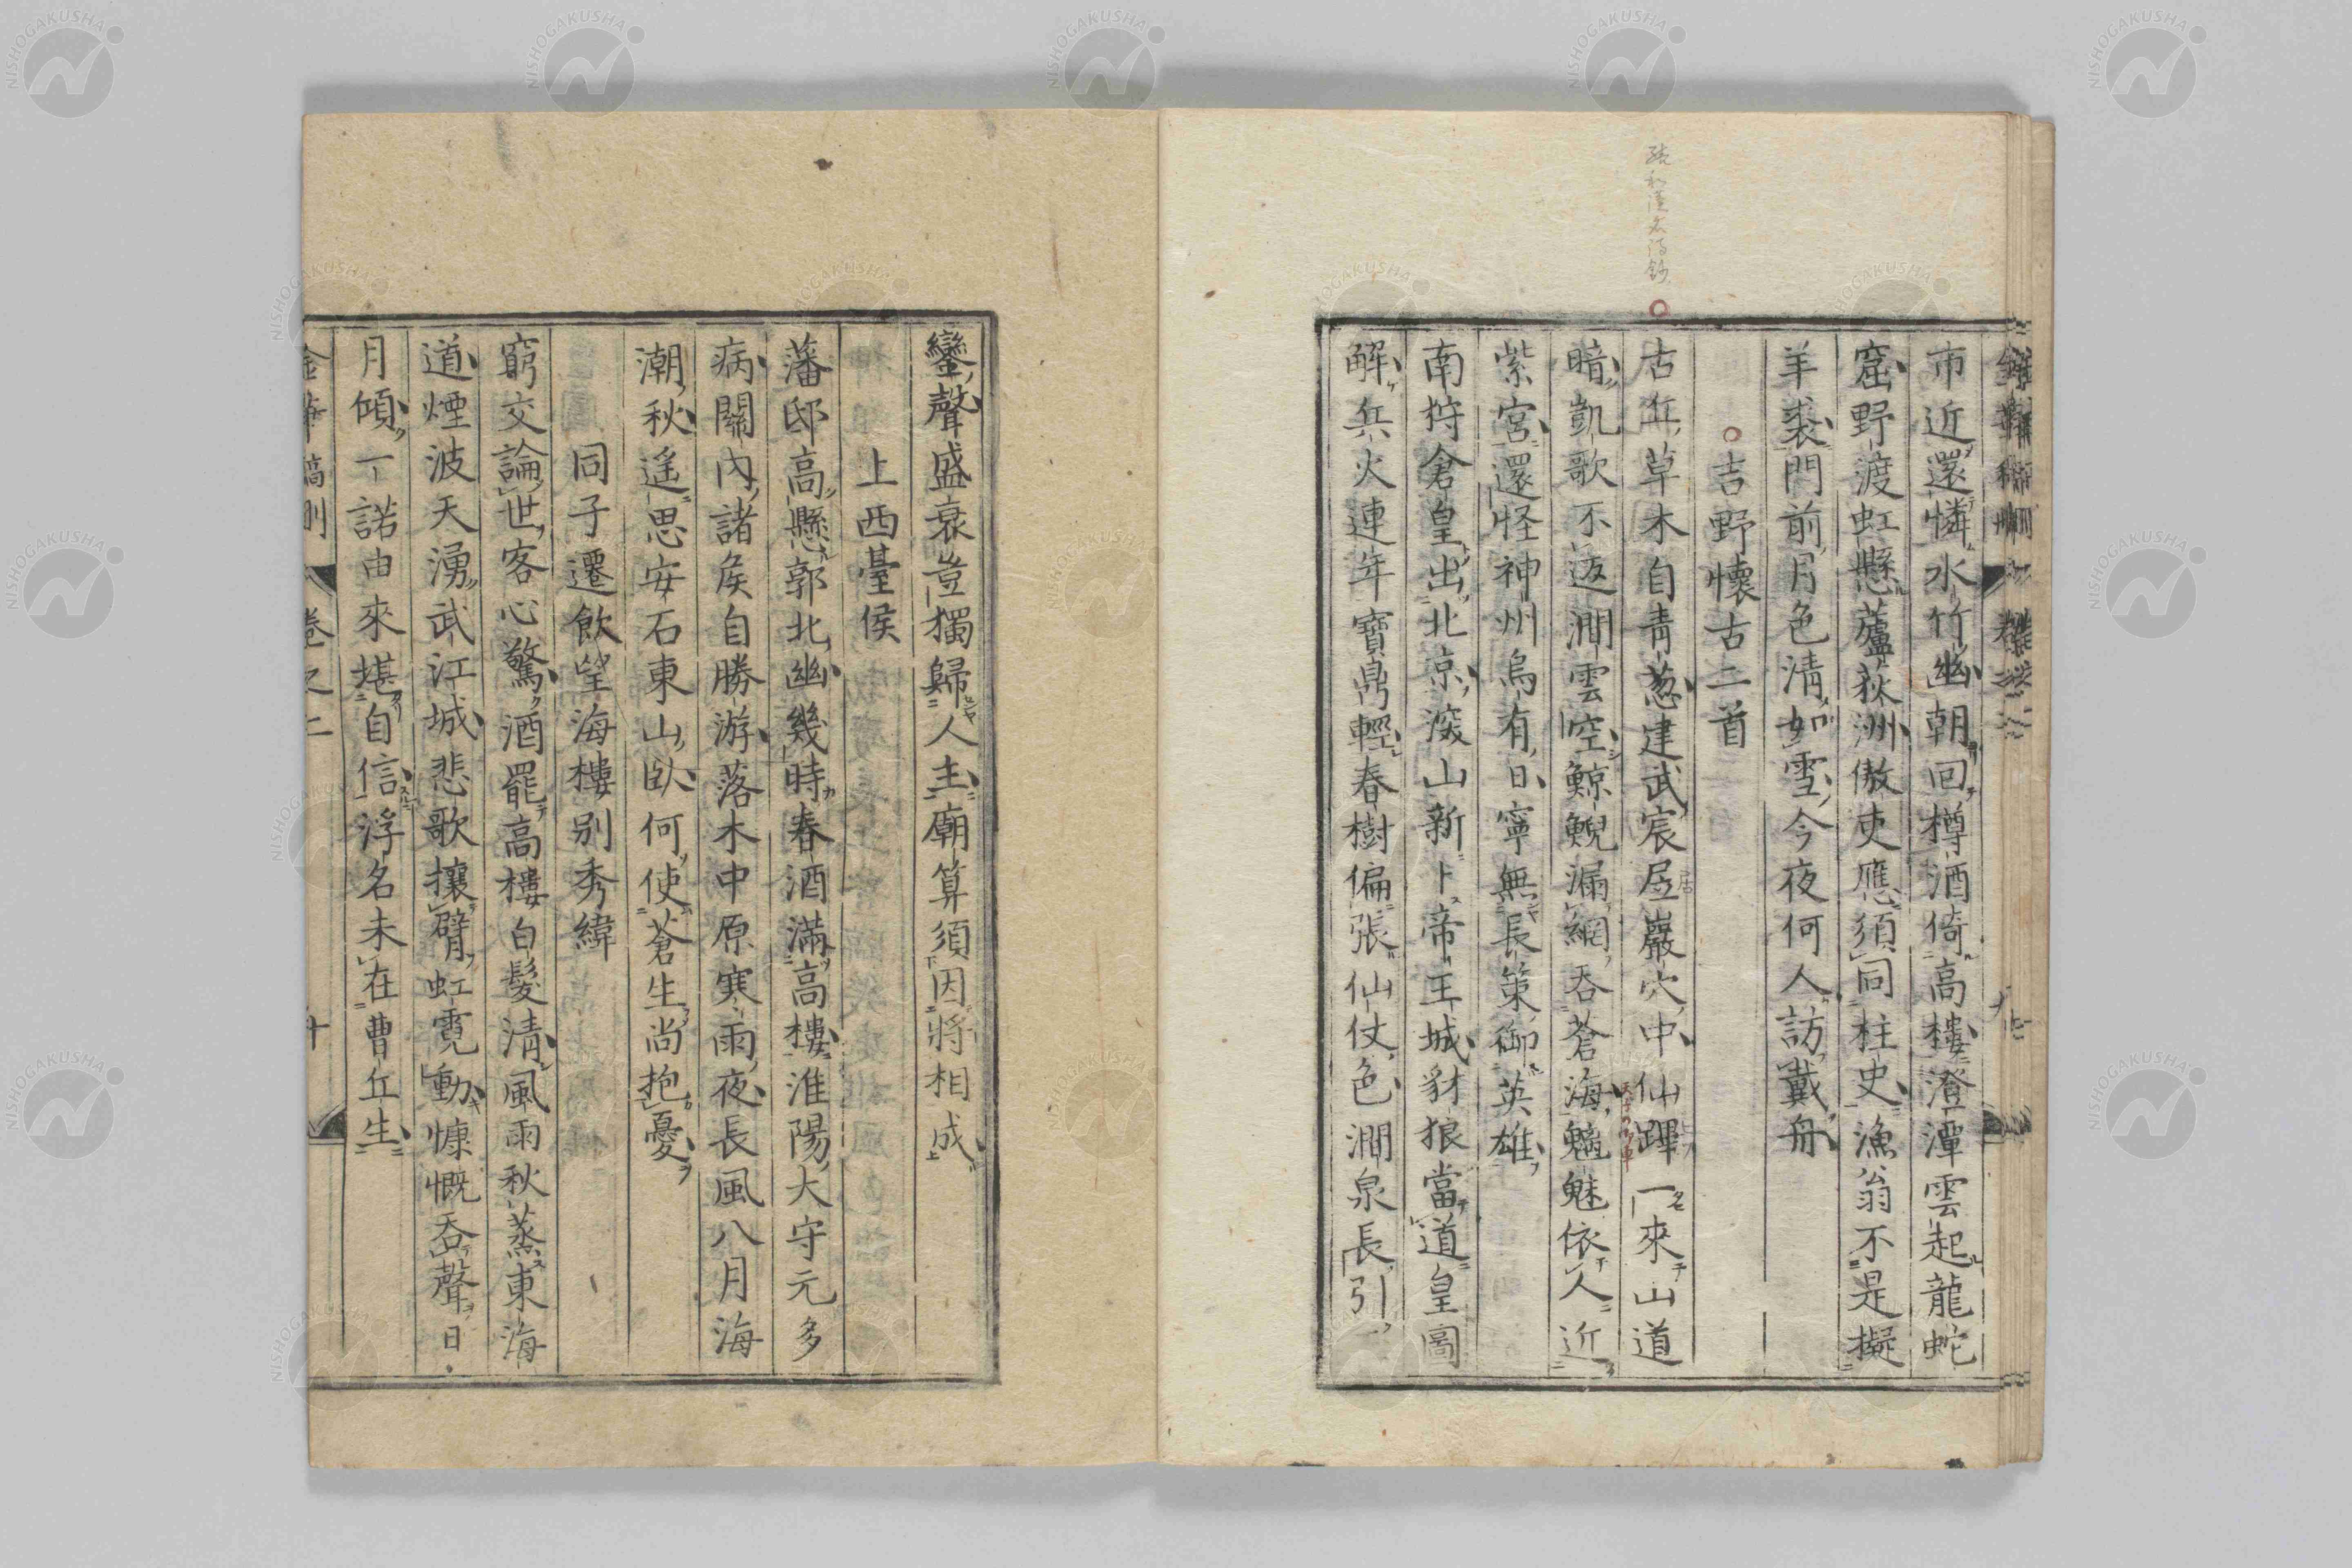 市近還憐水竹幽朝回樽酒倚高樓澄潭雲起龍蛇
窟野渡虹懸蘆荻洲傲吏應須同柱史漁翁不是擬
羊裘門前月色淸如雪今夜何人訪戴舟
吉野懷古二首
古丘草木自靑葱建武宸居巖穴中仙蹕一來山道
暗凱歌不返澗雲空鯨鯢漏網呑蒼海魑魅依人近
紫宮還怪神州烏有日寧無長策御英雄
南狩倉皇出北京深山新卜帝王城豺狼當道皇圖
解兵火連年寶鼎輕春樹偏張仙仗色澗泉長引
鑾聲盛衰豈獨歸人主廟算須因將相成
上西臺侯
藩邸高懸郭北幽幾時春酒滿高樓淮陽大守元多
病關內諸侯自勝游落木中原寒雨夜長風八月海
潮秋遙思安石東山臥何使蒼生尚抱憂
同子遷飮望海樓別秀緯
窮交論世客心驚酒罷高樓白髮淸風雨秋蒸東海
道煙波天湧武江城悲歌攘臂虹霓動慷慨呑聲日
月傾一諾由來堪自信浮名未在曹丘生
金華稿刪 卷之二